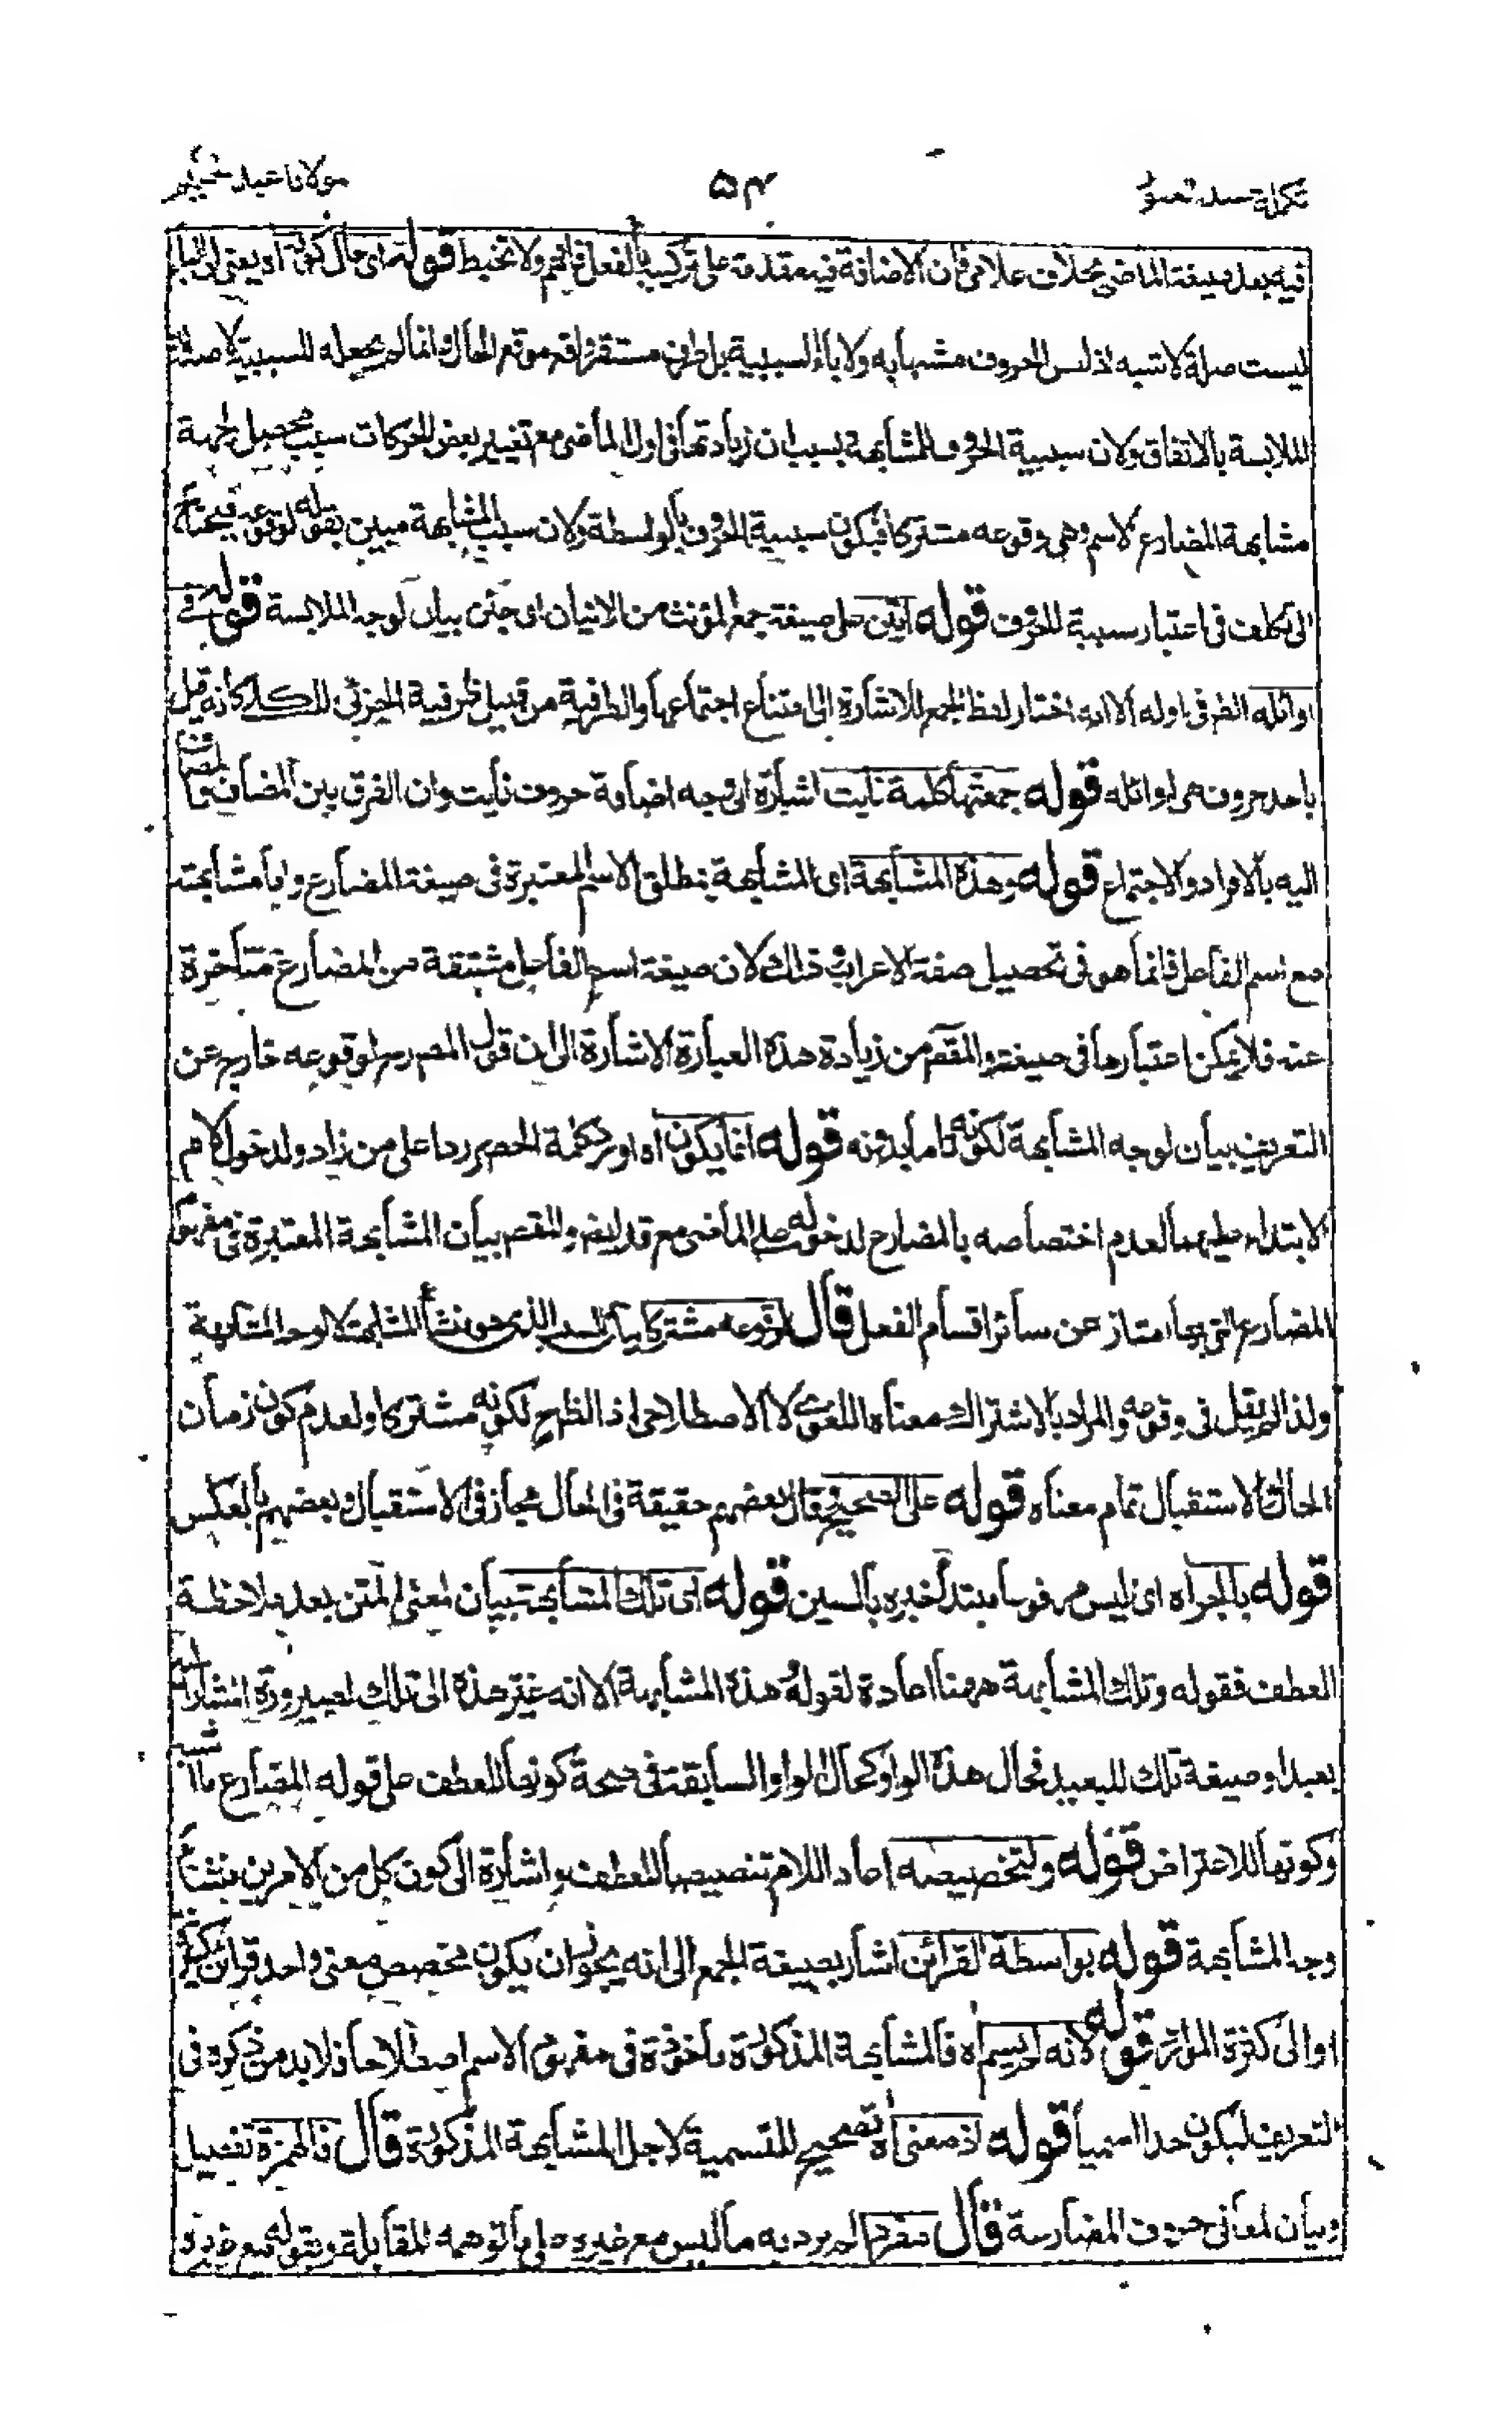 تكملة عبد الغفور ۵۴ مولانا عبد الحكيم
فيه بعد صيغة الماضى بخلاف غلامى فان الاضافة فيه مقدمة على تركيبه بالفعل فافهم ولا تخبط قوله اى حال كونه اه يعنى ان الباء
ليست صلة لاشبه اذ ليس الحروف مشبها به ولا باء السببية بل ظرف مستقر واقع موقع الحال وانما لم يجعله للسببية لاصالة
الملابسة بالاتفاق ولان سببية الحروف للمشابهة بسبب ان زيادتها فى اول الماضى مع تغيير بعض الحركات سبب تحصل جهة
مشابهة المضارع الاسم وهى وقوعه مشتركا فيكون سببية الحروف بالواسطة ولان سبب المشابهة مبين بقوله لوقوعه فيحتاج
الى تكلف فى اعتبار سببية الحروف قوله اتين على صيغة جمع المؤنث من الاتيان اى جئن بيان لوجه الملابسة قوله فى
اوائله الظرفى اوله الا انه اختار لفظ الجمع للاشارة الى امتناع اجتماعها والظرفية من قبيل ظرفية الجزئى للكلى كانه قيل
باحد حروف هى اوائله قوله جمعتها كلمة نايت اشارة الى وجه اضافة حروف نأيت وان الفرق بين المضاف والمضاف
اليه بالافراد والاجتماع قوله وهذه المشابهة اى المشابهة بمطلق الاسم المعتبرة فى صيغة المضارع واما مشابهته
مع اسم الفاعل فانما هو فى تحصيل صفة الاعراب وذلك لان صيغة اسم الفاعل مشتقة من المضارع متأخرة
عنه فلا يمكن اعتبارها فى صيغته والمقصود من زيادة هذه العبارة الاشارة الى ان قول المصنف لوقوعه خارج عن
التعريف بيان لوجه المشابهة لكونه تاما بدونه قوله انما يكون اه اورد كلمة الحصر ردا على من زاد ولدخول لام
الابتداء عليهما لعدم اختصاصه بالمضارع لدخوله على الماضى مع قد ايضا والمقصود بيان المشابهة المعتبرة فى مفهوم
المضارع التى بها امتاز عن سائر اقسام الفعل قال لوقوعه مشتركا بيان للسبب الذى هو منشأ للمشابهة لا لوجه المشابهة
ولذا لم يقل فى وقوعه والمراد بالاشتراك معناه اللغوى لا الاصطلاحى اذ الظاهر لكونه مشتركا ولعدم كون زمان
الحال والاستقبال تمام معناه قوله على الصحيح فقال بعضهم حقيقة فى الحال مجاز فى الاستقبال وبعضهم بالعكس
قوله بالجر اه اى ليس مرفوعا مبتدأ خبره بالسين قوله اى تلك المشابهة بيان لمعنى المتن بعد ملاحظة
العطف فقوله وتلك المشابهة ههنا اعادة لقوله هذه المشابهة الا انه غير هذه الى تلك لصيرورة المشار اليه
بعيدا وصيغة تلك للبعيد فحال هذه الواو كحال الواو السابقة فى صحة كونها للعطف على قوله المضارع ما اشبه
وكونها للاعتراض قوله ولتخصيصه اعاد اللام تنصيصا للعطف واشارة الى كون كل من الامرين منشأ
وجه المشابهة قوله بواسطة القرائن اشار بصيغة الجمع الى انه يجوز ان يكون مخصص معنى واحد قرائن كثيرة
او الى كثرة المواد قوله لانه لم يسم اه فالمشابهة المذكورة مأخوذة فى مفهوم الاسم اصطلاحا فلابد من ذكره فى
التعريف ليكون حدا اسميا قوله اذ معناه تصحيح للتسمية لاجل المشابهة المذكورة قال فالهمزة تفصيل
وبيان لمعانى حروف المضارعة قال مفردا لم يرد به ما ليس مع غيره على ما توهمه المقابلة وبقوله مع غيره